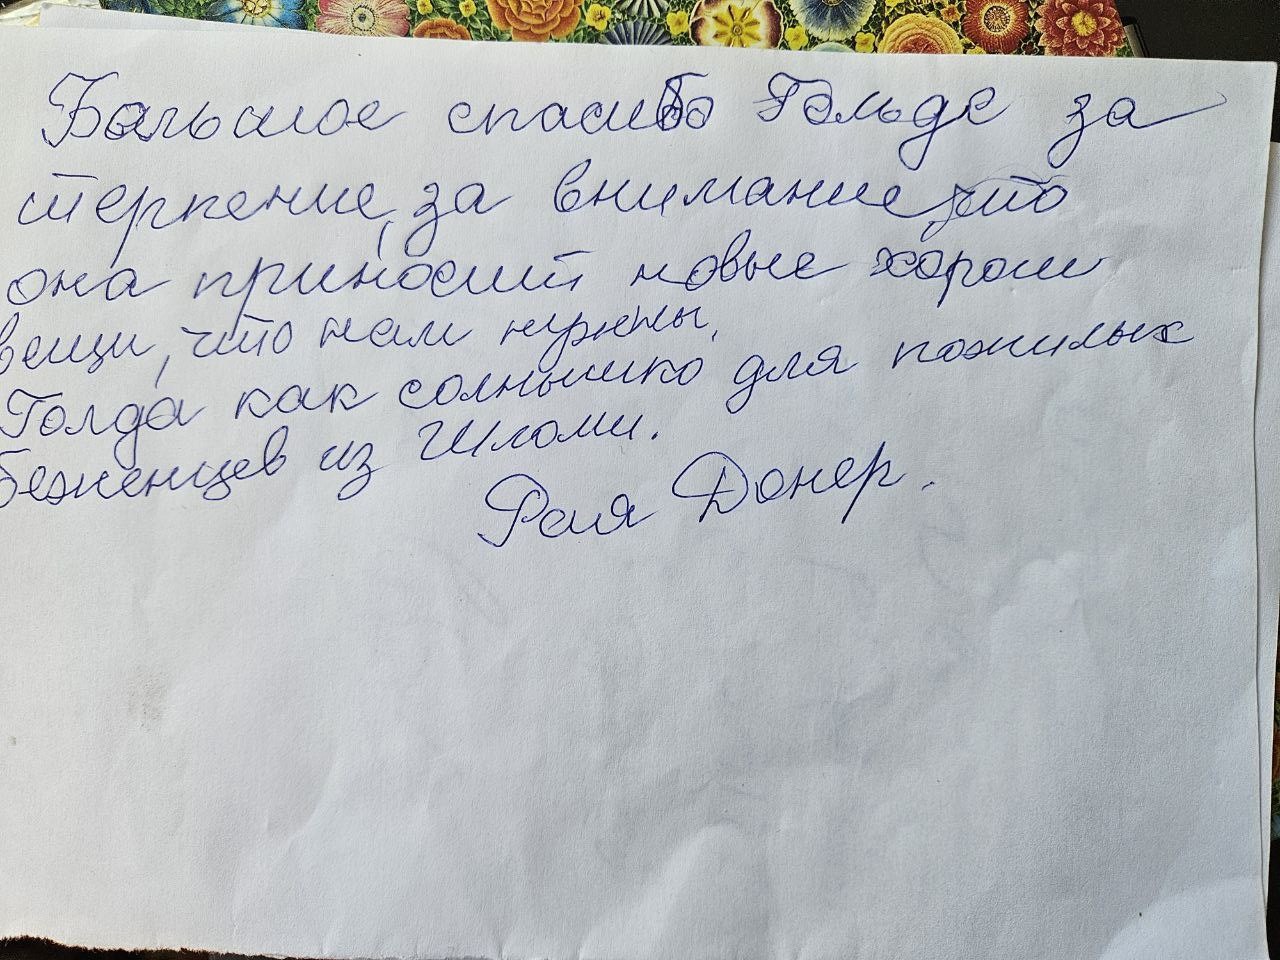 Большое спасибо Гольде за
терпение, за внимание, что
она приносит новые хороши
вещи, что нам нужны.
Голда как солнышко для пожилых
беженцев из Шломи.
Рая Донер.